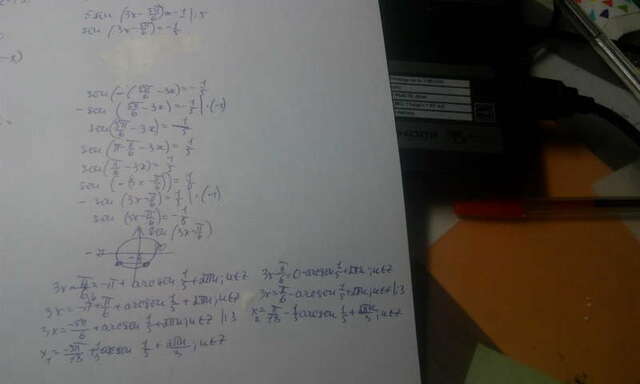 5sin(3x-5π/6)=-1 |:5
sin(3x-5π/6)=-1/5
sin(-(5π/6-3x))=-1/5
-sin(5π/6-3x)=-1/5 |·(-1)
sin(5π/6-3x)=1/5
sin(π-π/6-3x)=1/5
sin(π/6-3x)=1/5
sin(-(3x-π/6))=1/5
-sin(3x-π/6)=1/5 |·(-1)
sin(3x-π/6)=-1/5
sin(3x-π/6)
-π
3x-π/6=-π+arcsin 1/5+2πn; n∈Z 3x-π/6=0-arcsin 1/5+2πn, n∈Z
3x=-π+π/6+arcsin 1/5+2πn; n∈Z 3x=π/6-arcsin 1/5+2πn; n∈Z |:3
3x=-5π/6+arcsin 1/5+2πn; n∈Z |:3 x₂=π/18-1/3 arcsin 1/5+2πn/3; n∈Z
x₁=-5π/18+1/3 arcsin 1/5+2πn/3; n∈Z